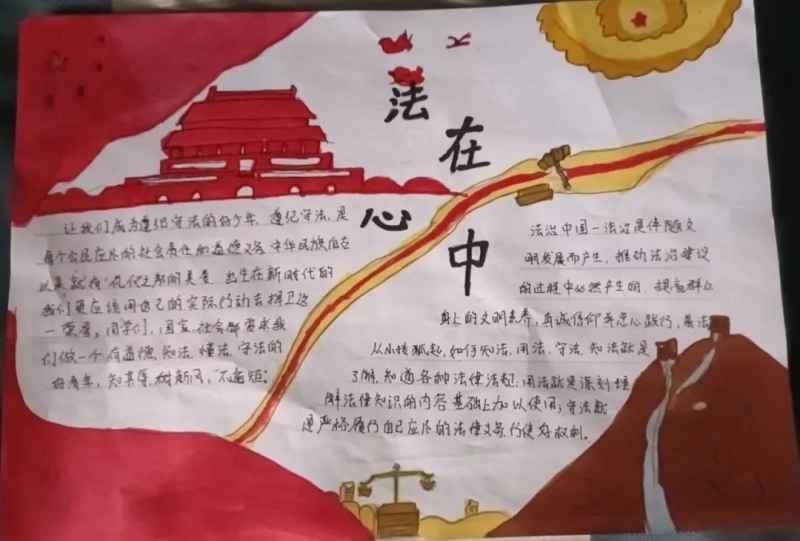 法在心中
让我们成为遵纪守法的好少年，遵纪守法，是
每个公民应尽的社会责任和道德义务 中华民族自古
以来就有礼仪之邦的美誉，出生在新时代的
我们更应该用自己的实际行动去捍卫这
一荣誉，同学们，国家，社会都要求我
们做一个有道德，知法，懂法，守法的
好青年，知其辱，树新风，
法治中国一法治是伴随文
明发展而产生，推动法治建设
的过程中必然产生的，提高群众
身上的文明素养，真诚信仰并忠心践行，
从小转孤起，如何知法，用法，守法，知法就是
了解，知道各种法律法规，用法就是深刻理
解法律知识的内容基础上加以使用；守法就
是严格履行自己应尽的法律义务行使好权利。